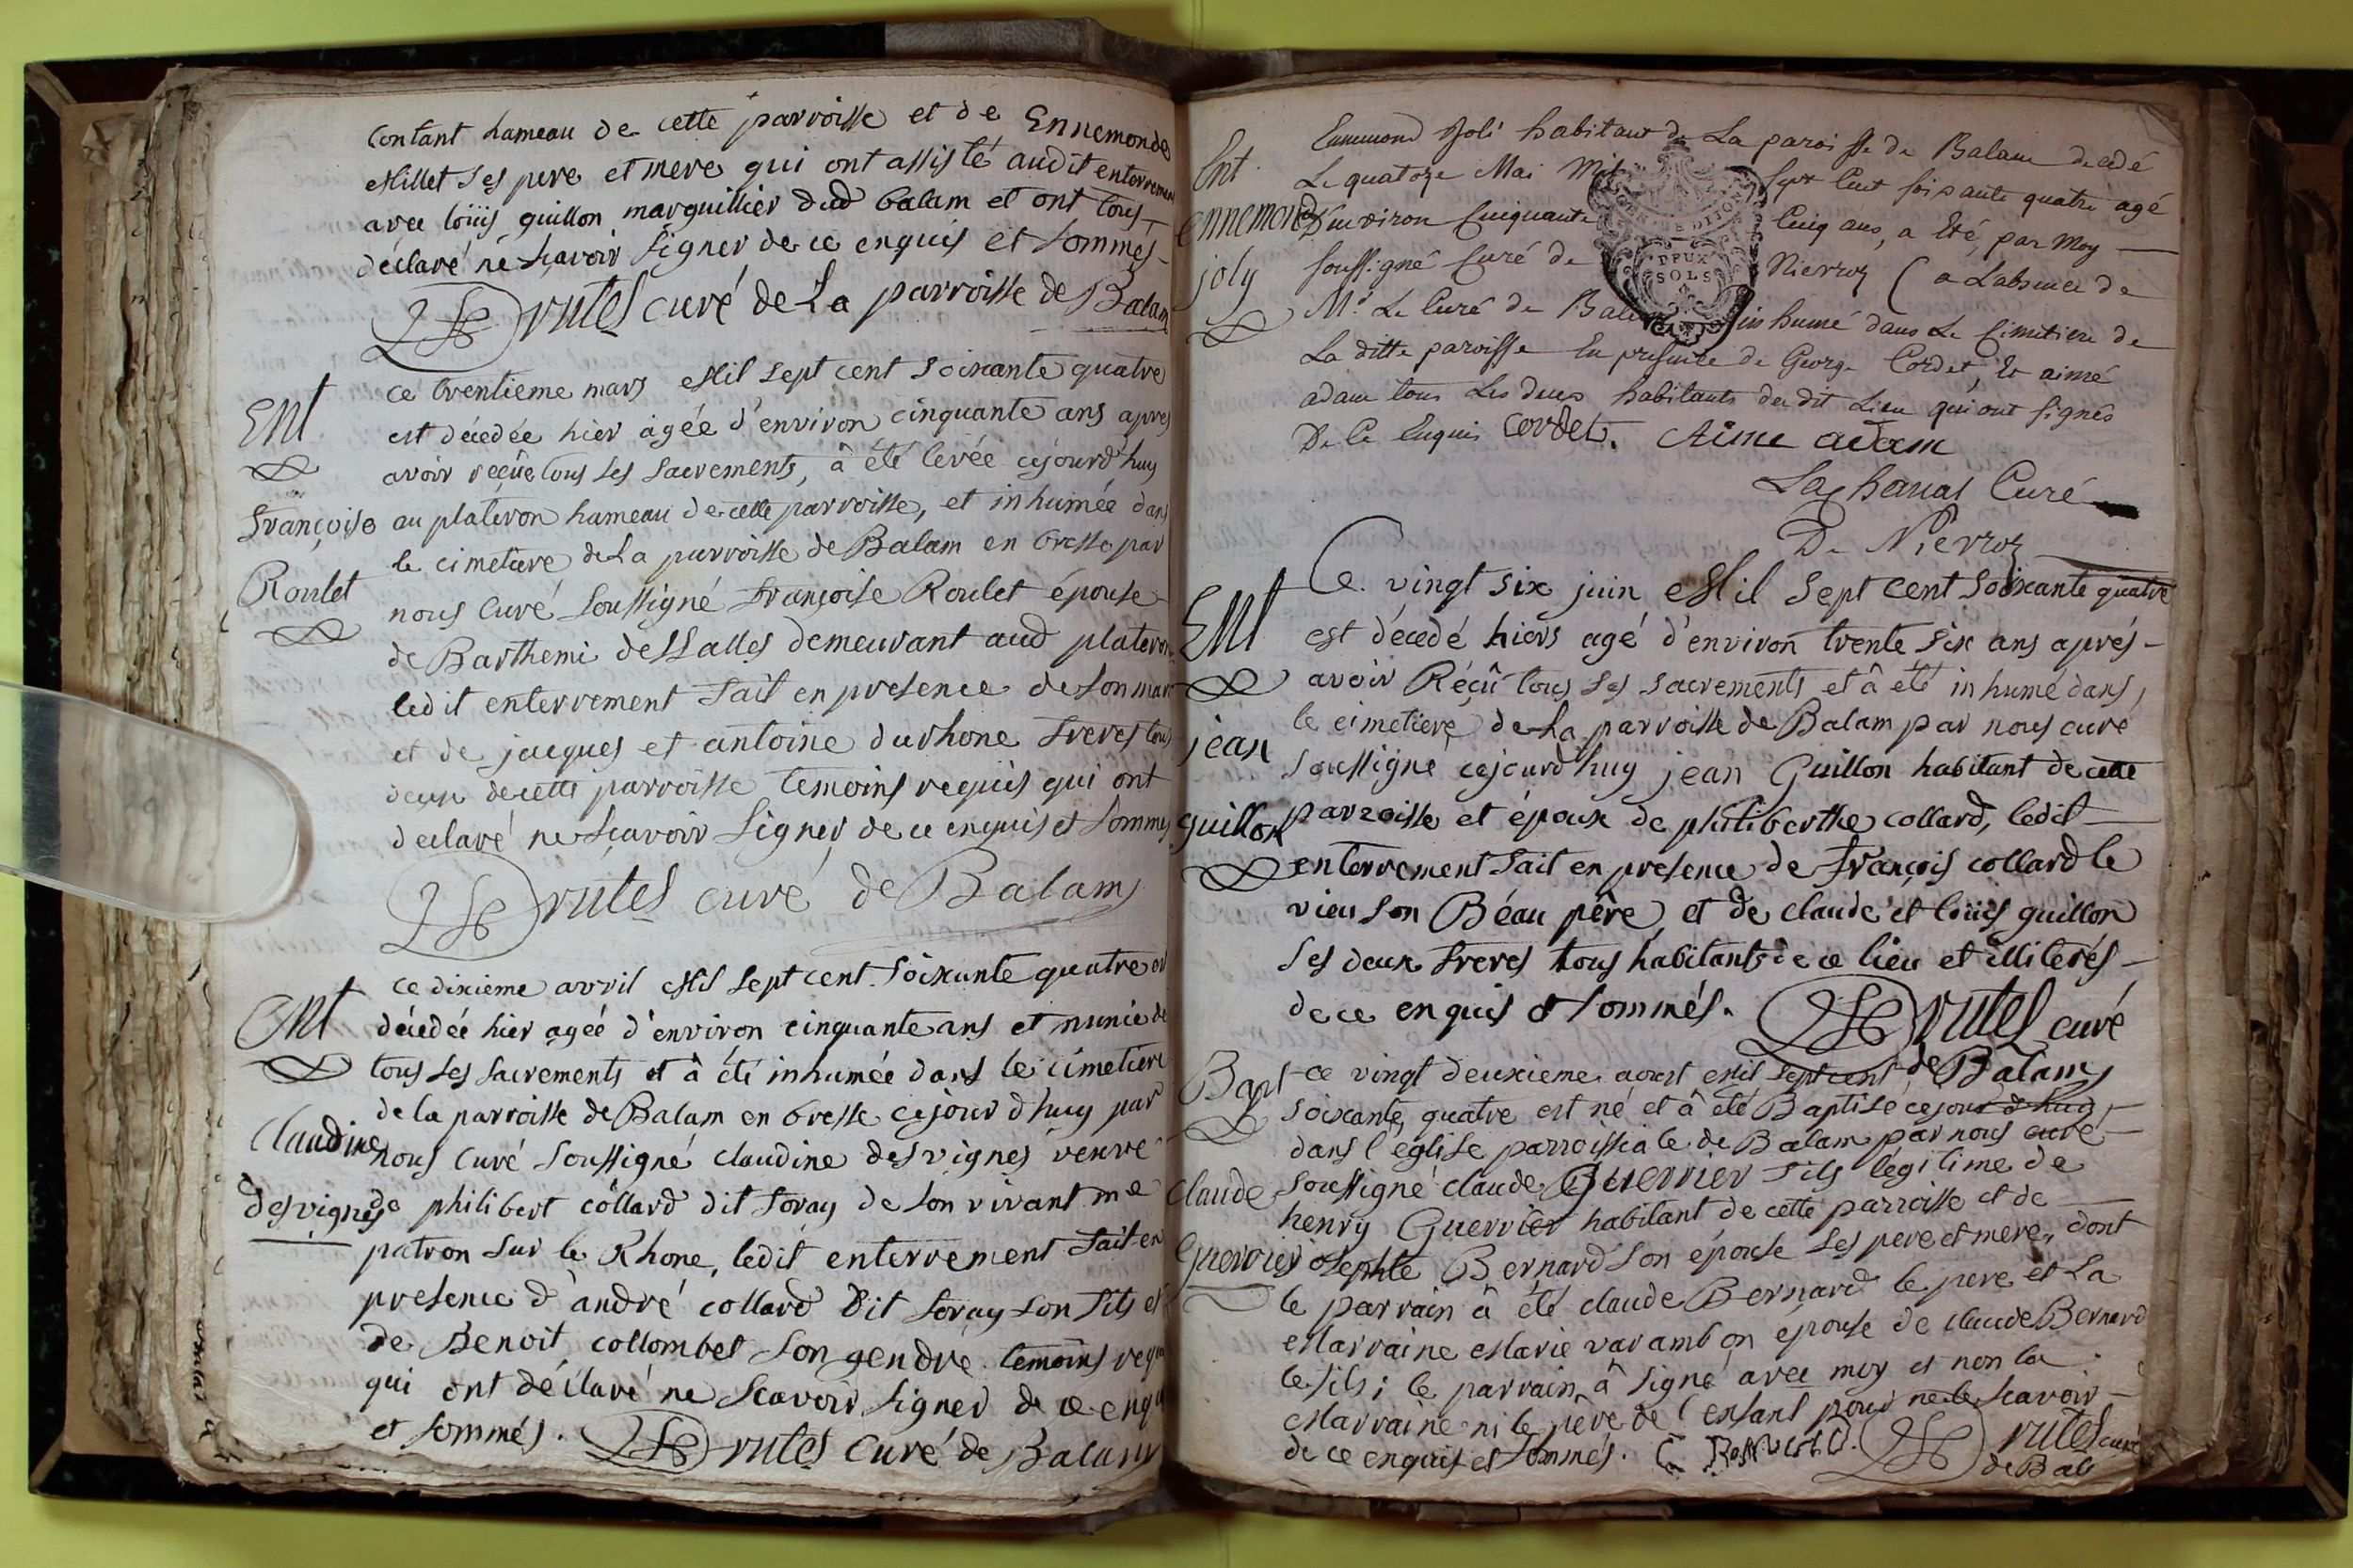 contant hameau de cette parroisse et de Ennemonde
Millet ses pere et mere qui ont assisté audit enterrement
avec loüis guillon marguillier dud balam et ont tous
déclaré ne scavoir signer de ce enquis et sommés
Drutel curé de La parroisse de Balam
Ent
françoise
Roulet
ce trentieme mars Mil sept cent soixante quatre
est décedée hier agée d'environ cinquante ans apres
avoir reçüe tous ses sacrements, à été levée cejourd'huy
au plateron hameau de cette parroisse, et inhumée dans
le cimetiere de La parroisse de Balam en bresse par
nous curé soussigné françoise Roulet épouse
de Barthemi desSalles demeurant aud plateron
ledit enterrement fait en presence de son mari
et de jacques et antoine durhone freres tous
deux de cette parroisse temoins requis qui ont
declaré ne scavoir signer de ce enquis et sommes
Drutel curé de Balam
Ent
Claudine
desvignes
ce dixieme avril Mil sept cent soixante quatre est
décedée hier agéé d'environ cinquante ans et munie de
tous ses sacrements et à été inhumée dans le cimetiere
de la parroisse de Balam en bresse cejourd'huy par
nous curé soussigné claudine desvignes veuve
de philibert collard dit foray de son vivant me
patron sur le Rhone, ledit enterrement fait en
presence d'andré collard dit foray son fils et
de Benoit collombet son gendre temoins requis
qui ont déclaré ne scavoir signer de ce enquis
et sommés. Drutel curé de Balam
Ent
ennemond
joly
Ennemond Joli habitant de La paroisse de Balam decedé
Le quatorze Mai Mil sept cent soixante quatre agé
D'environ cinquante cinq ans, a Eté, par Moy
soussigné curé de Nierroz ( a L'absence de
Mr. Le curé de Balam) inhumé dans Le cimetiere de
La ditte paroisse En presence de George Cordet, Et aimé
adam tous Les deux habitants du dit Lieu qui ont signés
De Ce Enquis Cordet. Aime adam
Lachanal Curé
De Nierroz
DEUX
SOLS
Ent
jean
guillon
Ce vingt six juin Mil sept cent soixante quatre
est décedé hiers agé d'environ trente six ans aprés
avoir Réçû tous ses sacrements et à été inhumé dans
le cimetiere de La parroisse de Balam par nous curé
soussigné cejourd'huy jean Guillon habitant de cette
parroisse et époux de philiberthe collard, ledit
enterrement fait en presence de françois collard le
vieu son Béau pêre, et de claude et loüis guillon
ses deux freres tous habitants de ce lieu et illiterés
de ce enquis & sommés. Drutel curé
de Balam
Bapt
claude
Guerrier
ce vingt deuxieme aoust Mil sept cent
soixante quatre est né et à été Baptisé cejourd'huy
dans l'église parroissiale de Balam par nous curé
soussigné claude Guerrier fils légitime de
henry Guerrier habitant de cette parroisse et de
Josephte Bernard son épouse ses pere et mere, dont
le parrain à été claude Bernard le pere et La
Marraine Marie varambon epouse de claude Bernard
le fils; le parrain à signé avec moy et non la
Marraine ni le père de l'enfant pour ne le scavoir
de ce enquis et sommés. C Drutel curé
de Bal